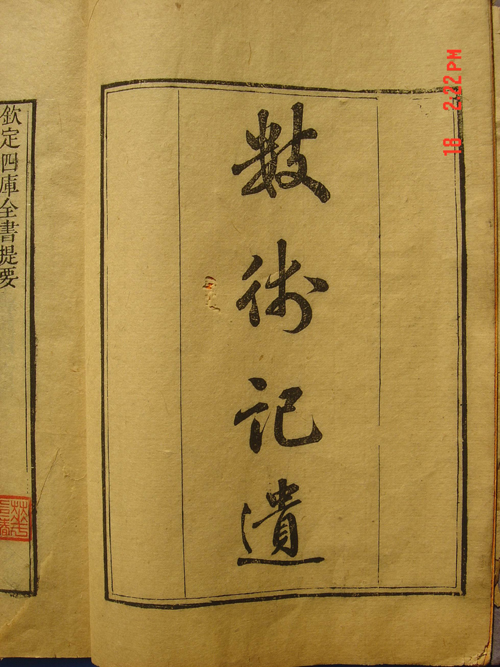 数術記遺
欽定四庫全書提要
18 2:22 PM